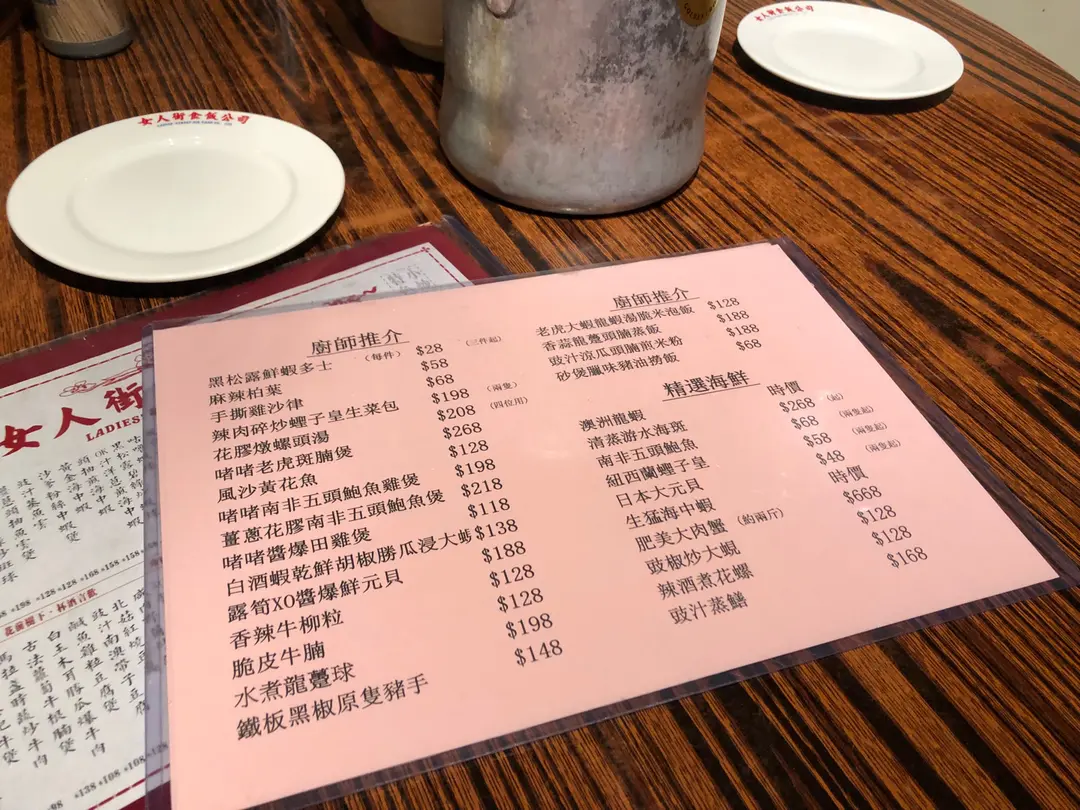 女人街食飯公司
女人街食飯公司
廚師推介
黑松露鮮蝦多士 (每件) $28 (三件起)
麻辣柏葉 $58
手撕雞沙律 $68
辣肉碎炒蟶子皇生菜包 $198 (兩隻)
花膠燉螺頭湯 $208 (四位用)
啫啫老虎斑腩煲 $268
風沙黃花魚 $128
啫啫南非五頭鮑魚雞煲 $198
薑蔥花膠南非五頭鮑魚煲 $218
啫啫醬爆田雞煲 $118
白酒蝦乾鮮胡椒勝瓜浸大蜆 $138
露筍XO醬爆鮮元貝 $188
香辣牛柳粒 $128
脆皮牛腩 $128
水煮龍躉球 $198
鐵板黑椒原隻豬手 $148
廚師推介
老虎大蝦龍蝦湯脆米泡飯 $128
香蒜龍躉頭腩蒸飯 $188
豉汁涼瓜頭腩煎米粉 $188
砂煲臘味豬油撈飯 $68
精選海鮮
澳洲龍蝦 時價
清蒸游水海斑 $268 (起)
南非五頭鮑魚 $68 (兩隻起)
紐西蘭蟶子皇 $58 (兩隻起)
日本大元貝 $48 (兩隻起)
生猛海中蝦 時價
肥美大肉蟹 (約兩斤) $668
豉椒炒大蜆 $128
辣酒煮花螺 $128
豉汁蒸鱔 $168
女人街
LADIES